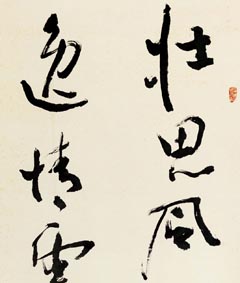 壮思風
逸情雲